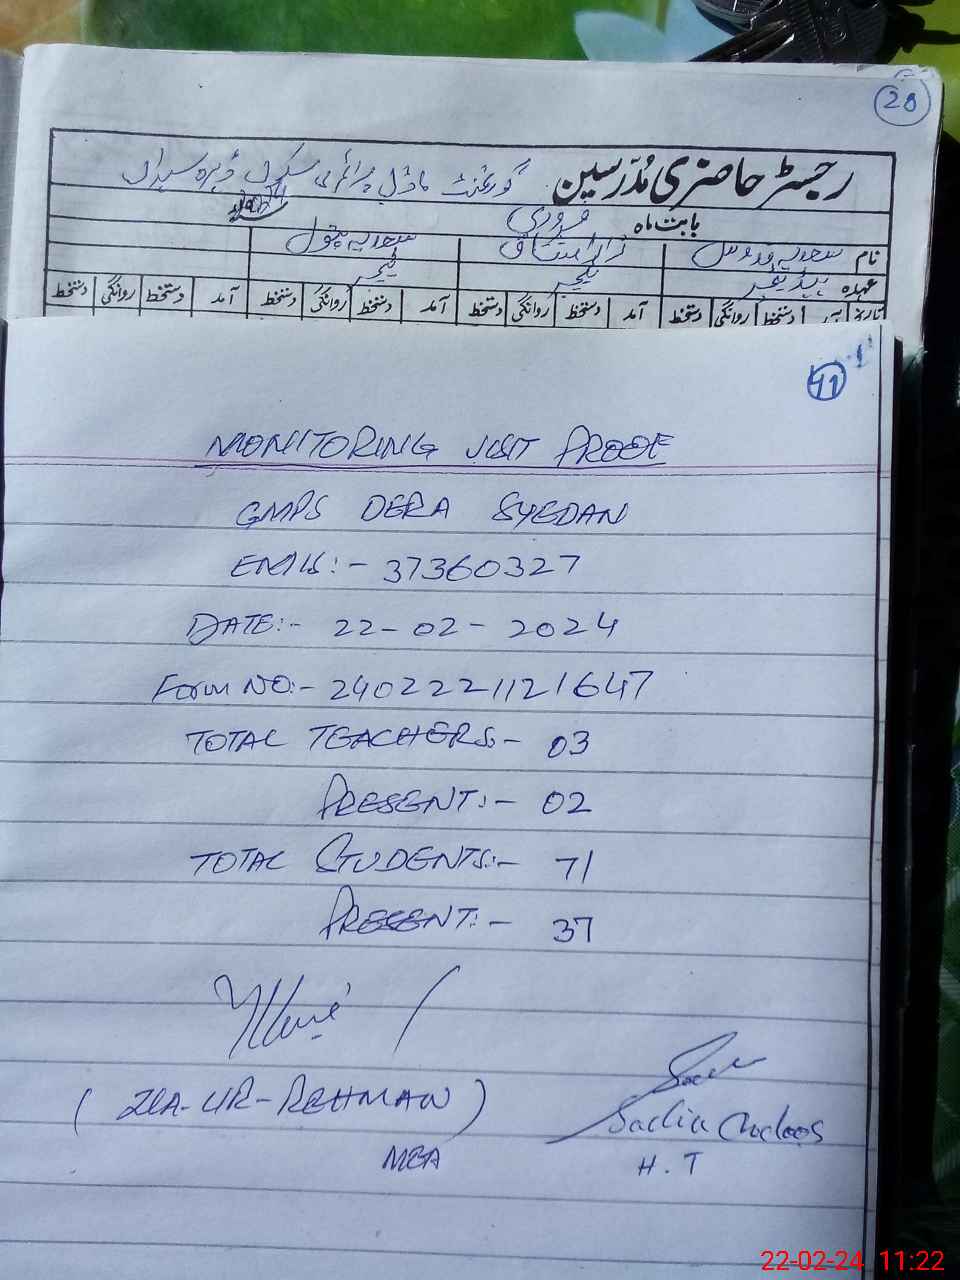 28
رجسٹر حاضری مُدرسین گورنمنٹ ماڈل پرائمری سکول ڈیرہ سیداں
بابت ماہ فروری
نام سعدیہ قدوس سعدیہ بتول
عہدہ ہیڈ ٹیچر ٹیچر ٹیچر
تاریخ آمد دستخط روانگی دستخط آمد دستخط روانگی دستخط آمد دستخط روانگی دستخط آمد دستخط روانگی دستخط
11
MONITORING VISIT PROOF
GMPS DERA SYEDAN
EMIS:- 37360327
DATE:- 22-02-2024
Form NO:- 2402221121647
TOTAL TEACHERS:- 03
PRESENT:- 02
TOTAL STUDENTS:- 71
PRESENT:- 37
(ZIA-UR-REHMAN)
MEA
Sadia Qudoos
H.T
22-02-24 11:22